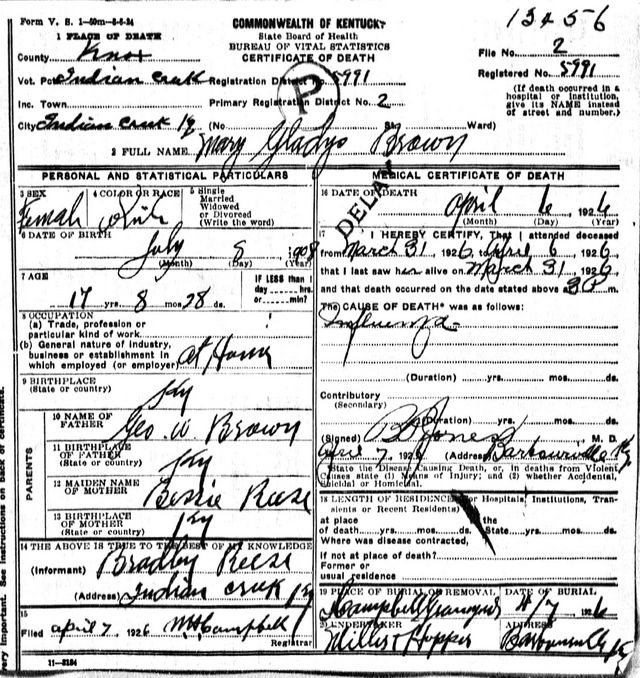 Form V. S. 1-50m-8-6-24
13456
COMMONWEALTH OF KENTUCKY
State Board of Health
BUREAU OF VITAL STATISTICS
CERTIFICATE OF DEATH
1 PLACE OF DEATH
County Knox
File No. 2
Vot. Pct. Indian Creek Registration District 5991
Registered No. 5991
(If death occurred in a hospital or institution, give its NAME instead of street and number.)
Inc. Town Primary Registration District No. 2
P
City Indian Creek Ky (No St. Ward)
2 FULL NAME Mary Gladys Brown
DELAYED
PERSONAL AND STATISTICAL PARTICULARS
3 SEX Female
4 COLOR OR RACE White
5 Single
Married
Widowed
or Divorced
(Write the word)
6 DATE OF BIRTH
July 8 1908
(Month) (Day) (Year)
7 AGE
17 yrs. 8 mos. 28 ds.
IF LESS than 1
day hrs.
or min?
8 OCCUPATION
(a) Trade, profession or
particular kind of work
(b) General nature of industry,
business or establishment in
which employed (or employer) at Home
9 BIRTHPLACE
(State or country) Ky
PARENTS
10 NAME OF
FATHER Geo. W Brown
11 BIRTHPLACE
OF FATHER
(State or country) Ky
12 MAIDEN NAME
OF MOTHER Bessie Reese
13 BIRTHPLACE
OF MOTHER
(State or country) Ky
14 THE ABOVE IS TRUE TO THE BEST OF MY KNOWLEDGE
(Informant) Bradley Reese
(Address) Indian Creek Ky
15
Filed april 7 1926 Campbell
Registrar
11-3184
MEDICAL CERTIFICATE OF DEATH
16 DATE OF DEATH
April 6, 1926
(Month) (Day) (Year)
17 I HEREBY CERTIFY, That I attended deceased
from March 31, 1926, to April 6, 1926,
that I last saw her alive on March 31, 1926,
and that death occurred on the date stated above 3 P m.
The CAUSE OF DEATH* was as follows:
Influenza
(Duration) yrs. mos. ds.
Contributory
(Secondary)
(Duration) yrs. mos. ds.
(Signed) Jones M. D.
April 7, 1926 (Address) Barbourville Ky.
State the Disease Causing Death, or, in deaths from Violent
Causes state (1) Means of Injury; and (2) whether Accidental,
Suicidal or Homicidal.
18 LENGTH OF RESIDENCE (For Hospitals, Institutions, Transients or Recent Residents)
at place the
of death yrs. mos. ds. State yrs. mos. ds.
Where was disease contracted,
if not at place of death?
Former or
usual residence
19 PLACE OF BURIAL OR REMOVAL
DATE OF BURIAL
Campbell 4/7 1926
20 UNDERTAKER
ADDRESS
Miller & Hopper Barbourville Ky
very important. See instructions on back of certificate.